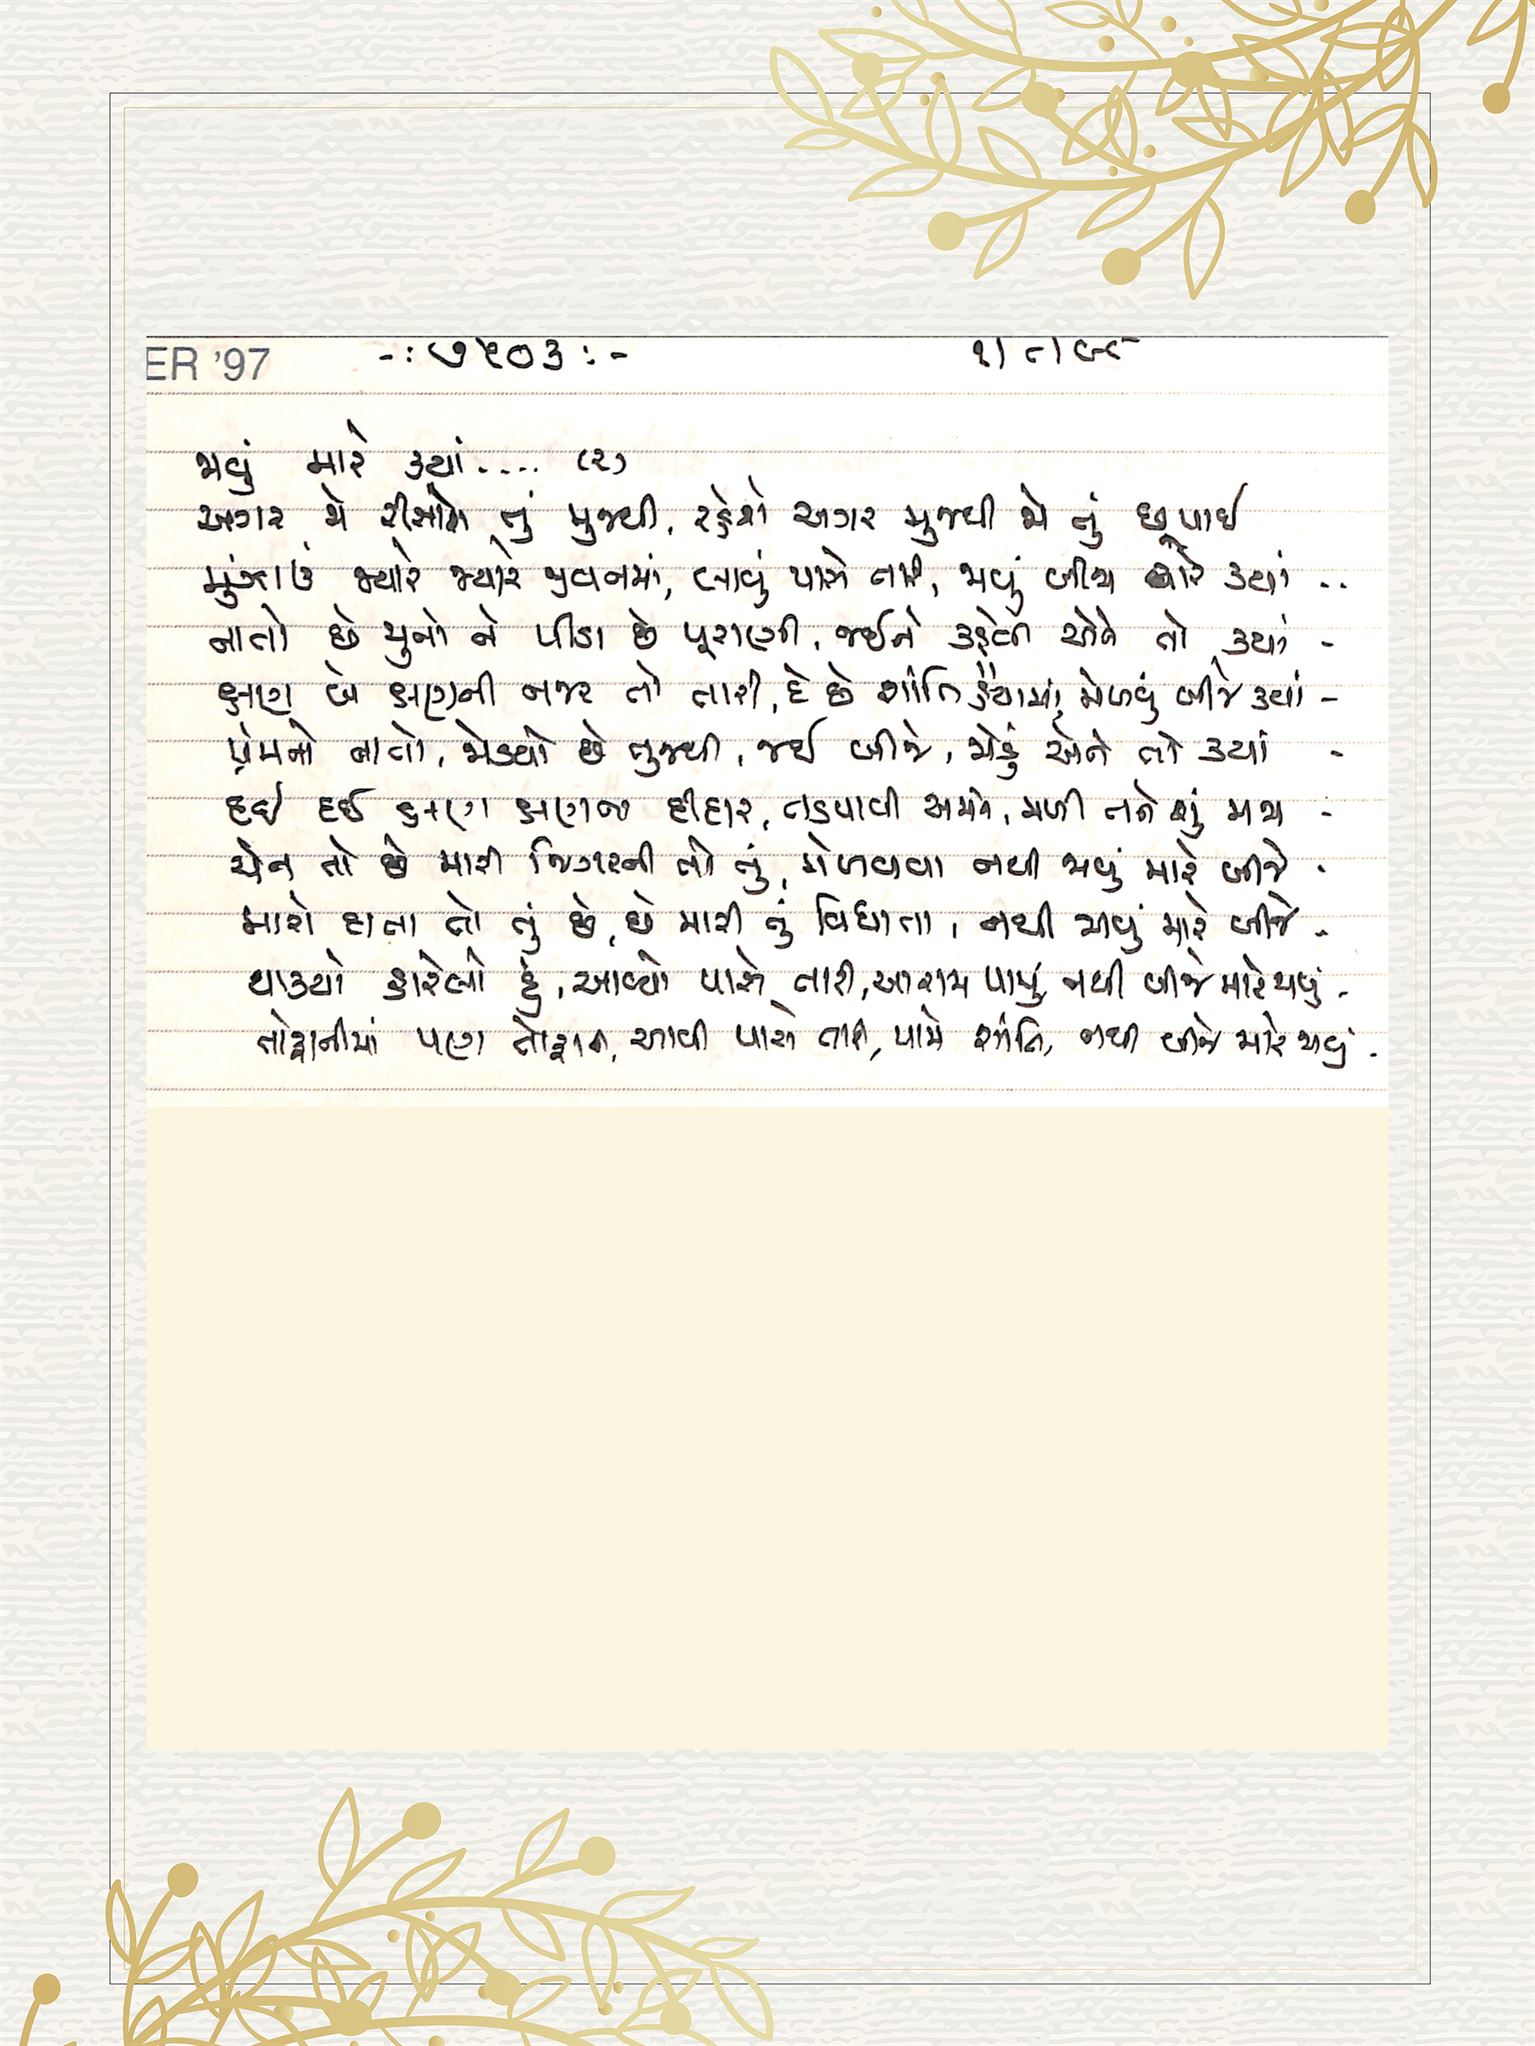 ER '97 -: ૭૫૦૩ :- ૧/૮/૯૮
જાવું મારે ક્યાં.... (૨)
અગર જો રીસાઈશ તું મુજથી, રહેશે અગર મુજથી જો તું છૂપાઈ
મુંઝાઉં જ્યારે જ્યારે જીવનમાં, આવું પાસે તારી, જાવું બીજા દ્વારે ક્યાં ..
નાતો છે જુનો ને પીડા છે પૂરાણી, જઈને કહેવી એને તો ક્યાં -
ક્ષણ બે ક્ષણની નજર તો તારી, દે છે શાંતિ હૈયામાં, મેળવું બીજે ક્યાં -
પ્રેમનો નાતો, જોડયો છે તુજથી, જઈ બીજે, જોડું એને તો ક્યાં -
દઈ દઈ ક્ષણ ક્ષણના દીદાર, તડપાવી અમને, મળી તને શું મજા -
ચેન તો છે મારા જિગરની તો તું, મેળવવા નથી જાવું મારે બીજે -
મારો દાતા તો તું છે, છે મારી તું વિધાતા, નથી જાવું મારે બીજે -
થાક્યો હારેલો હું, આવ્યો પાસે તારી, આરામ પામું, નથી બીજે મારે જાવું -
તોફાનીમાં પણ તોફાન, આવી પાસે તારી, પામે શાંતિ, નથી બીજે મારે જાવું -